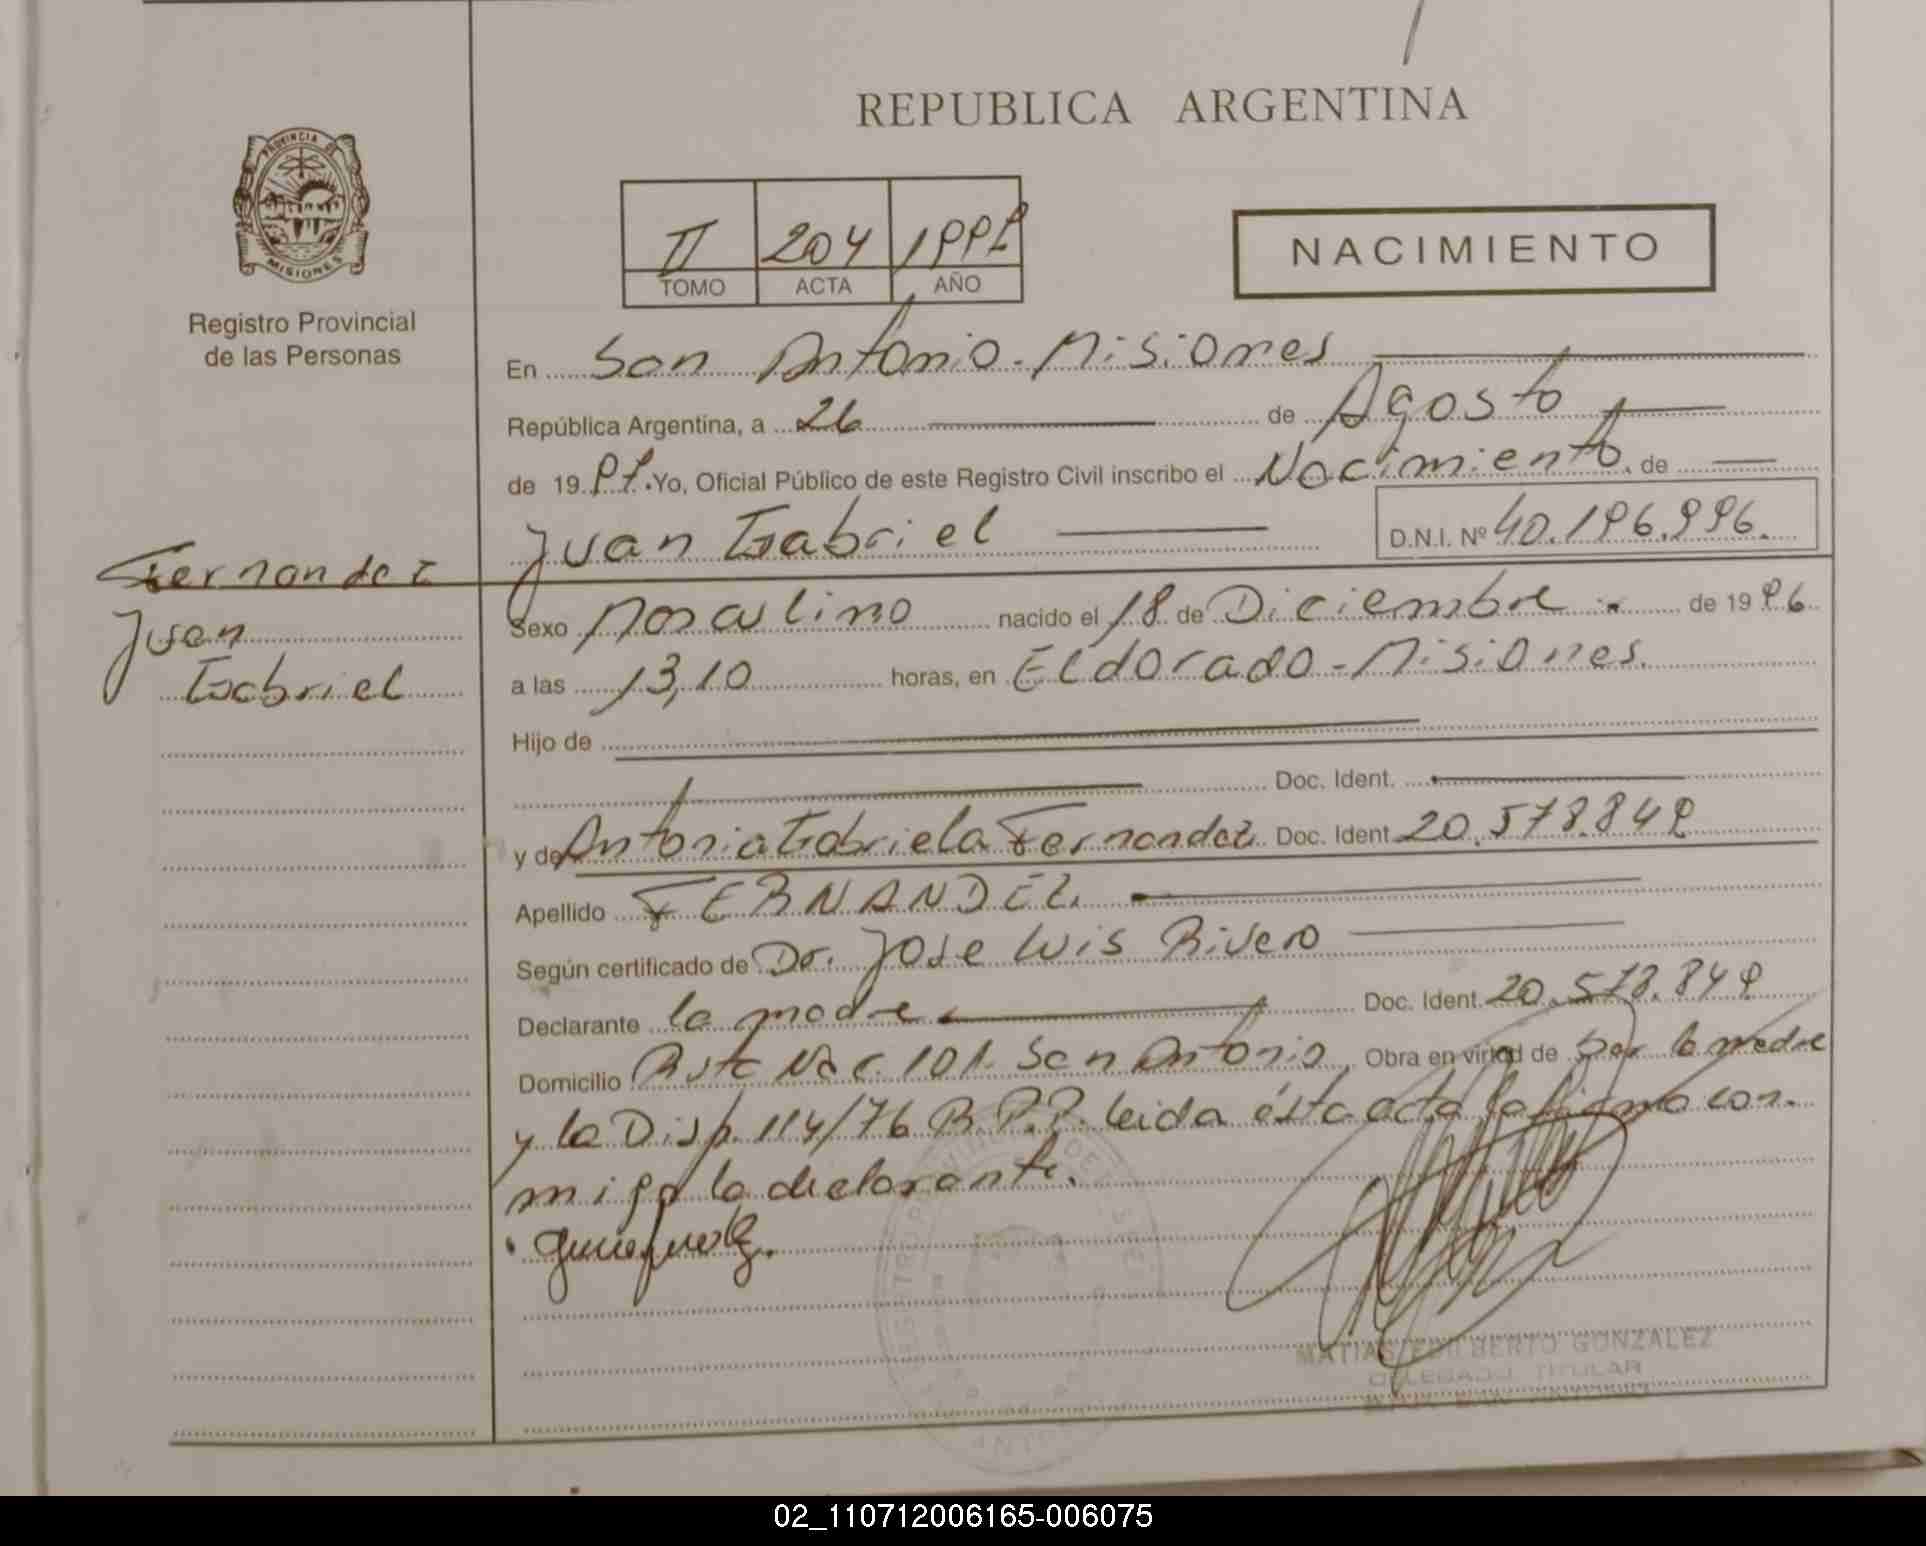 REPUBLICA ARGENTINA
PROVINCIA DE
MISIONES
Registro Provincial
de las Personas
II 204
TOMO ACTA AÑO
NACIMIENTO
En San Antonio - Misiones
República Argentina, a 26 de Agosto
de 19 Yo, Oficial Público de este Registro Civil inscribo el Nacimiento de
Juan Gabriel D.N.I. Nº 40.196.996.
Fernandez
Juan
Gabriel
Sexo Masculino nacido el 18 de Diciembre de 1996
a las 13,10 horas, en Eldorado - Misiones.
Hijo de
Doc. Ident.
y de Antonia Gabriela Fernandez Doc. Ident. 20.578.849
Apellido FERNANDEZ.
Según certificado de Dr. Jose Luis Rivero
Declarante la madre Doc. Ident. 20.578.849
Domicilio Ruta Nac. 101. San Antonio Obra en virtud de Ser la madre
y la Disp. 114/76 R.P.P. leida ésta acta la firma con-
migo la declarante.
MATIAS EDILBERTO GONZALEZ
DELEGADO TITULAR
02_110712006165-006075